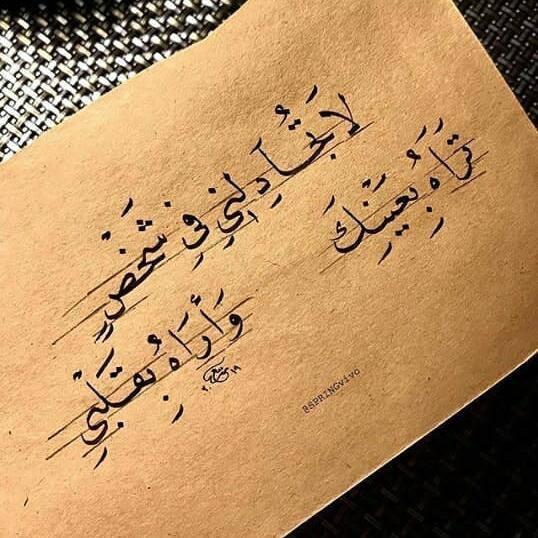 لَا تُجَادِلنِي فِي شَخْصٍ
تَرَاهُ بِعَيْنِكَ
وَأَرَاهُ بِقَلْبِي
@SPRINGVIVO